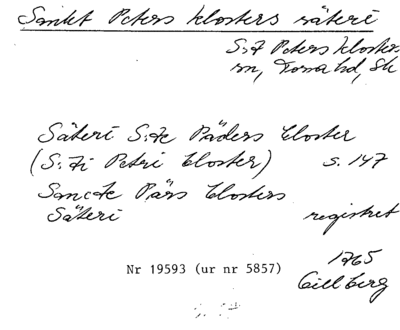 Sankt Peters klosters säteri
S:t Peters klosters
sn, Torna hd, Sk
Säteri S:te Päders Closter
(S:ti Petri Closter) s. 147
Sancte Pärs Closters
Säteri registret
1765
Nr 19593 (ur nr 5857)
Gillberg